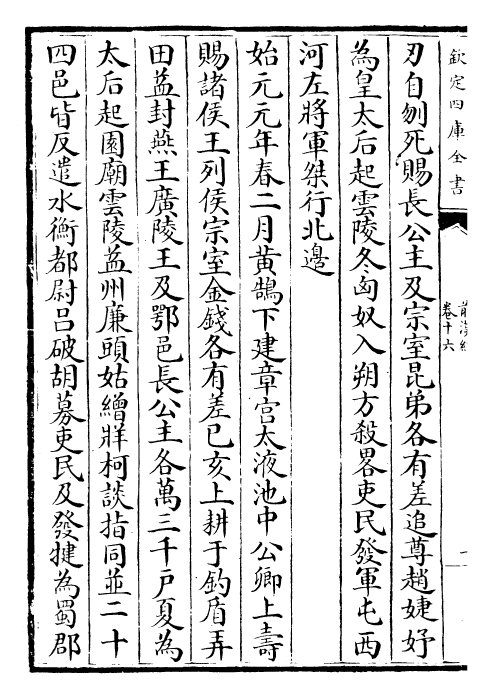 欽定四庫全書
前漢紀
卷十六
刃自刎死賜長公主及宗室昆弟各有差追尊趙婕妤
為皇太后起雲陵冬匈奴入朔方殺畧吏民發軍屯西
河左將軍桀行北邊
始元元年春二月黄鵠下建章宫太液池中公卿上壽
賜諸侯王列侯宗室金錢各有差已亥上耕于鈎盾弄
田益封燕王廣陵王及鄂邑長公主各萬三千戸夏為
太后起園廟雲陵益州廉頭姑繒牂柯談指同並二十
四邑皆反遣水衡都尉吕破胡募吏民及發犍為蜀郡